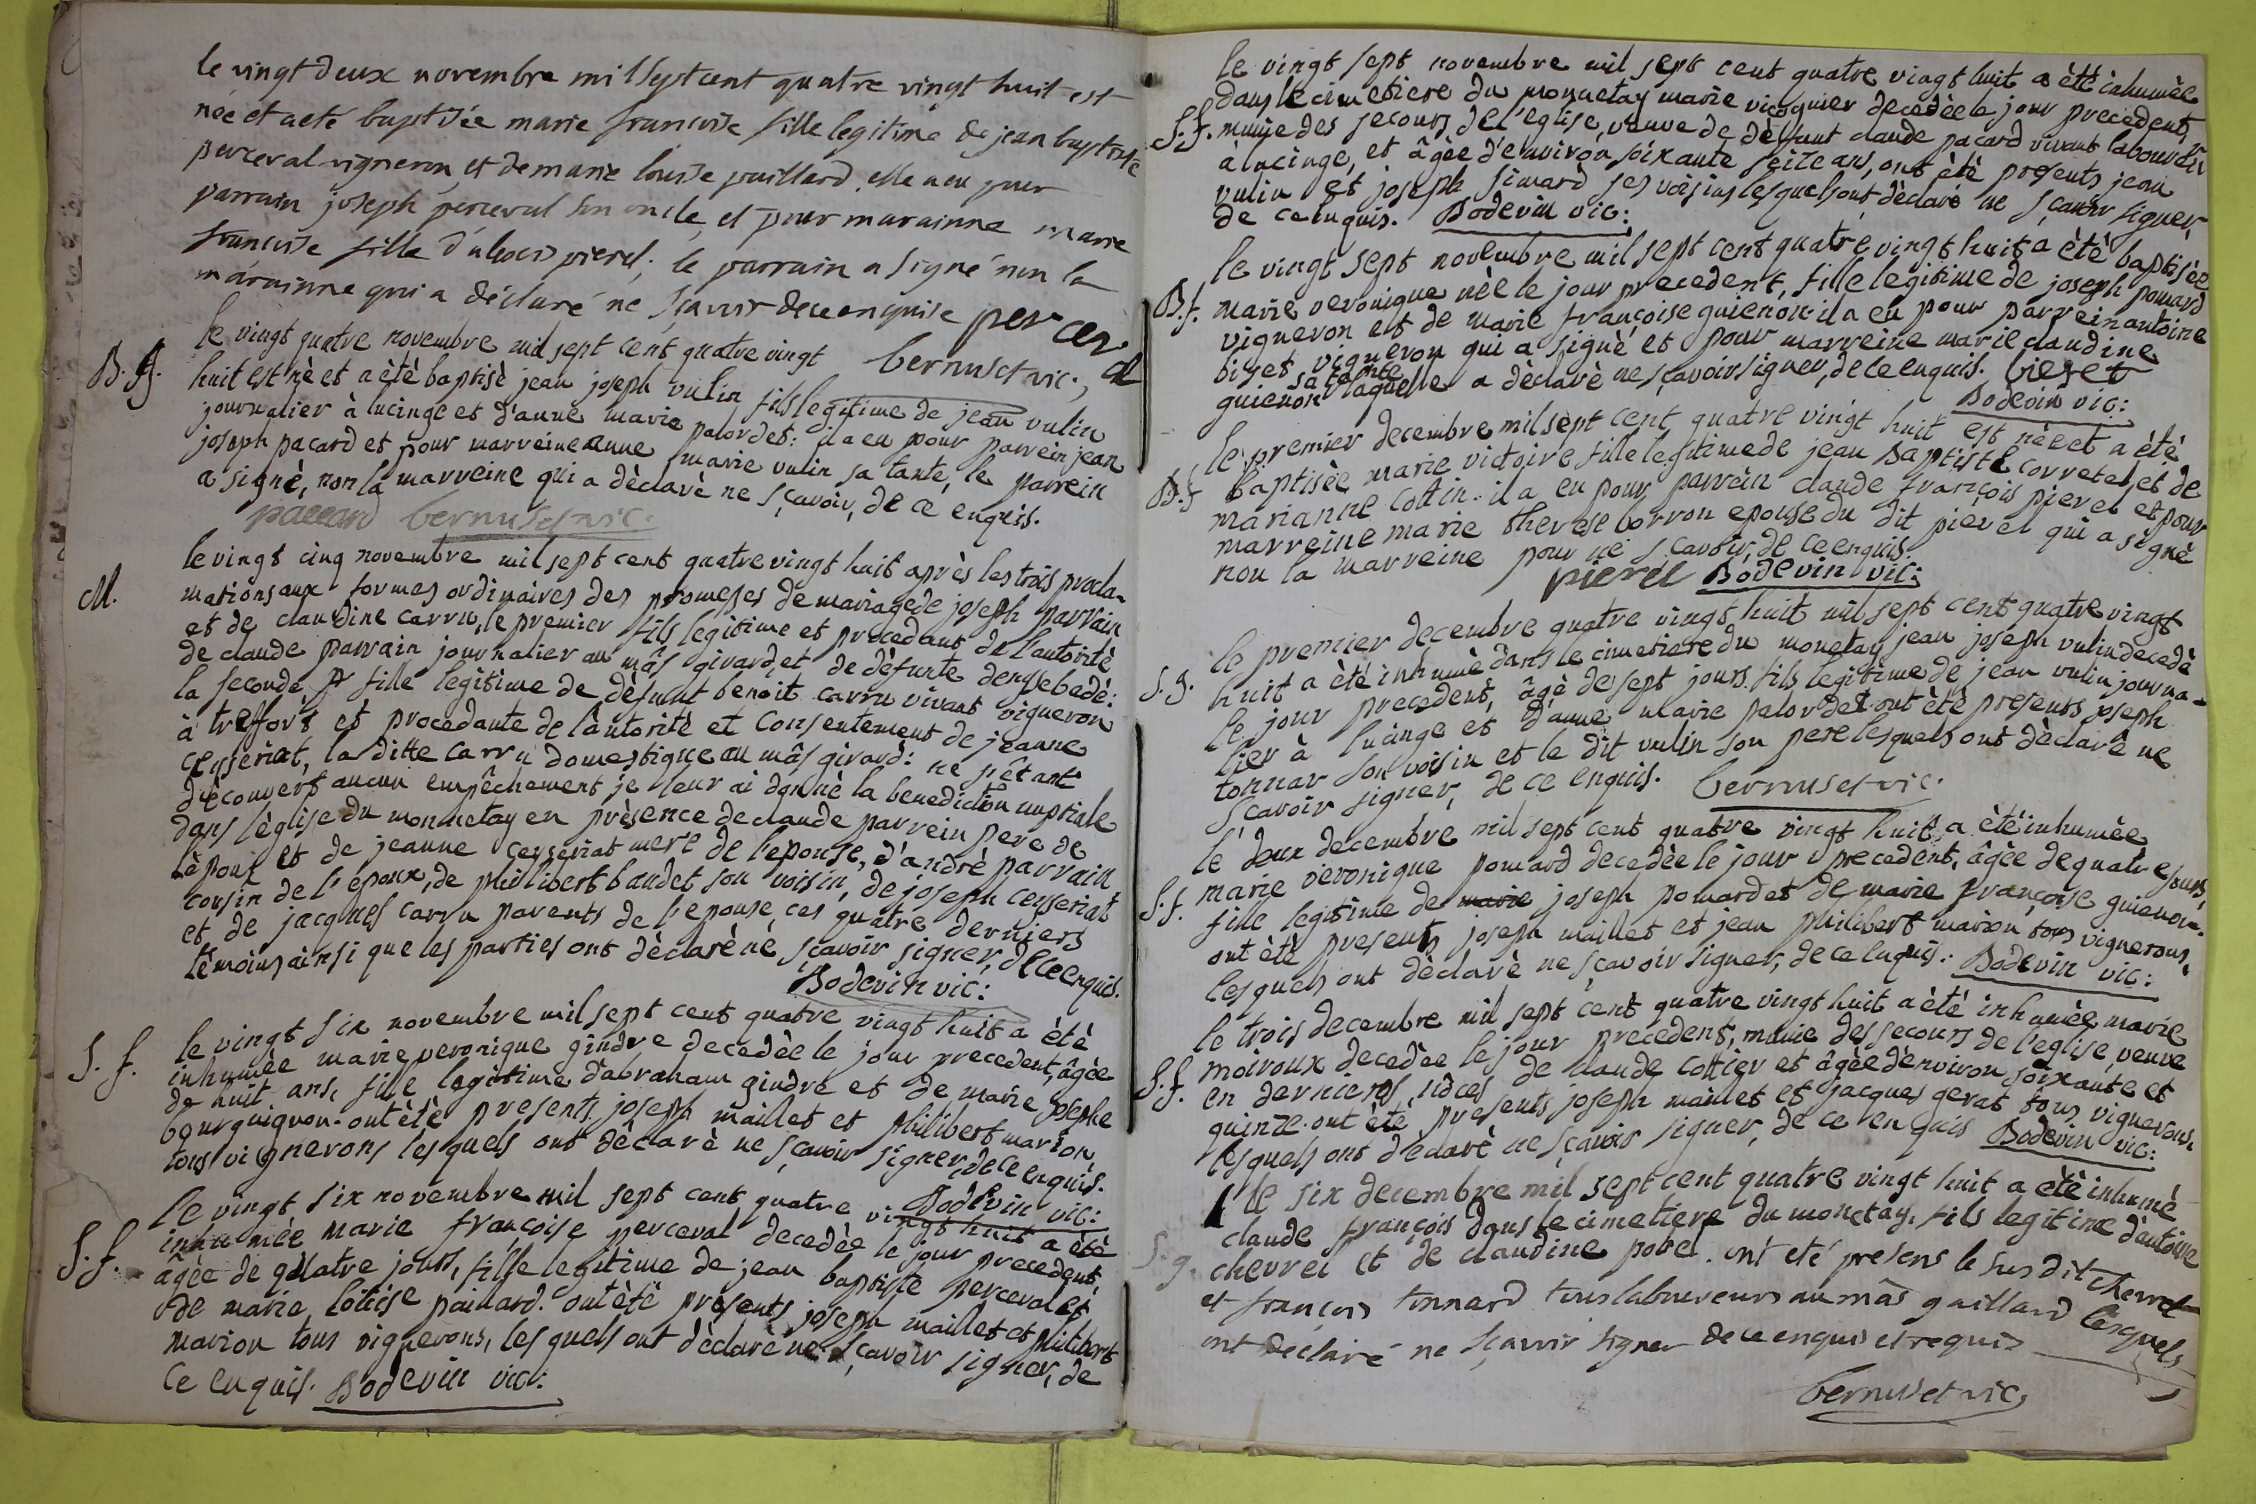 le vingt deux novembre mil sept cent quatre vingt huit est
née et a eté baptisée marie francoise fille legitime de jean baptiste
perceval vigneron et de marie louise paillard. elle a eu pour
parrain joseph perceval son oncle, et pour marainne marie
francoise fille d'alexis pierel; le parrain a signé non la
marainne qui a déclaré ne sçavoir de ce enquise perceval
bernuset vic:
B. g. le vingt quatre novembre mil sept cent quatre vingt
huit est nè et a ètè baptisè jean joseph vulin fils legitime de jean vulin
journalier à lucinge et d'anne marie palordet: il a eu pour parrein jean
joseph pacard et pour marreine anne marie vulin sa tante, le parrein
a signè, non la marreine qui a dèclarè ne sçavoir, de ce enquis.
paccard bernuset vic.
le vingt cinq novembre mil sept cent quatre vingt huit après les trois procla-
M. mations aux formes ordinaires des promesses de mariage de joseph parrain
et de claudine carru, le premier fils legitime et procedant de l'autoritè
de claude parrain journalier au mâs girard, et de dèfunte
la seconde fille legitime de dèfunt benoit carru vivant vigneron
à treffort et procedante de l'autoritè et consentement de jeanne
ceyseriat, la ditte carru domestique au mâs girard: ne s'ètant
dècouvert aucun empêchement je leur ai donnè la benediction nuptiale
dans l'èglise du monnetay en prèsence de claude parrein pere de
l'èpoux et de jeanne ceyseriat mere de l'epouse, d'andrè parrain
cousin de l'èpoux, de philibert baudet son voisin, de joseph ceyseriat
et de jacques carru parents de l'epouse, ces quatre derniers
tèmoins ainsi que les parties ont dèclarè ne sçavoir signer, de ce enquis.
Bodevin vic:
le vingt six novembre mil sept cent quatre vingt huit a ètè
S. f. inhumèe marie veronique gindre decedèe le jour precedent, âgèe
de huit ans, fille legitime d'abraham gindre et de marie josephe
bourguignon. ont ètè presents joseph maillet et philibert marion
tous vignerons lesquels ont dèclarè ne sçavoir signer, de ce enquis.
Bodevin vic:
le vingt six novembre mil sept cent quatre vingt huit a ètè
S. f. inhumèe marie françoise perceval decedèe le jour precedent,
âgèe de quatre jours, fille legitime de jean baptiste perceval et
de marie loüise paillard. ont ètè prèsents joseph maillet et philibert
marion tous vignerons, lesquels ont dèclarè ne sçavoir signer, de
ce enquis. Bodevin vic:
le vingt sept novembre mil sept cent quatre vingt huit a ètè inhumèe
dans le cimetiere du monnetay marie vicognier decedèe le jour precedent,
S. f. munie des secours de l'eglise, veuve de defunt claude pacard vivant laboureur
à lucinge, et âgèe d'environ soixante seize ans, ont ètè presents jean
vulin et joseph simard ses voisins lesquels ont dèclarè ne sçavoir signer
de ce enquis. Bodevin vic:
le vingt sept novembre mil sept cent quatre vingt huit a ètè baptisèe
B. f. marie veronique nèe le jour precedent, fille legitime de joseph pomard
vigneron et de marie françoise guienon. il a eu pour parrein antoine
biset vigneron qui a signè et pour marreine marie claudine
sa tante
guienon laquelle a dèclarè ne sçavoir signer, de ce enquis. bieset
Bodevin vic:
le premier decembre mil sept cent quatre vingt huit est nèe et a ètè
B. f. baptisèe marie victoire fille legitime de jean Baptiste corretel, et de
marianne cottin. il a eu pour parrein claude françois pierel et pour
marreine marie therese borron epouse du dit pierel qui a signè
non la marreine pour ne sçavoir, de ce enquis.
pierel Bodevin vic:
le premier decembre quatre vingt huit mil sept cent quatre vingt
S. g. huit a ètè inhumè dans le cimetiere du monetay jean joseph vulin decedè
le jour precedent, âgè de sept jours. fils legitime de jean vulin journa-
lier à lucinge et d'anne marie palordet. ont ètè presents joseph
tonnar son voisin et le dit vulin son pere lesquels ont dèclarè ne
sçavoir signer, de ce enquis. bernuset vic.
le deux decembre mil sept cent quatre vingt huit a ètè inhumèe
S. f. marie veronique pomard decedèe le jour precedent, âgèe de quatre jours,
fille legitime de marie joseph pomard et de marie françoise guienon.
ont ètè presents joseph maillet et jean philibert marion tous vignerons,
lesquels ont dèclarè ne sçavoir signer, de ce enquis. Bodevin vic:
le trois decembre mil sept cent quatre vingt huit a ètè inhumèe marie
S. f. moiroux decedèe le jour precedent, munie des secours de l'eglise, veuve
en dernieres nôces de claude cottier et âgèe d'environ soixante et
quinze. ont ètè presents joseph maillet et jacques gerat tous vignerons,
lesquels ont declarè ne sçavoir signer, de ce enquis Bodevin vic:
le six decembre mil sept cent quatre vingt huit a ètè inhumè
claude françois dans le cimetiere du monetay, fils legitime d'entoine
S. g. chevrel et de claudine pobel. ont eté presens le susdit chevrel
et françois tonnard tous laboureurs au mâs gaillard lesquels
ont déclaré ne sçavoir signer de ce enquis et requis
bernuset vic,